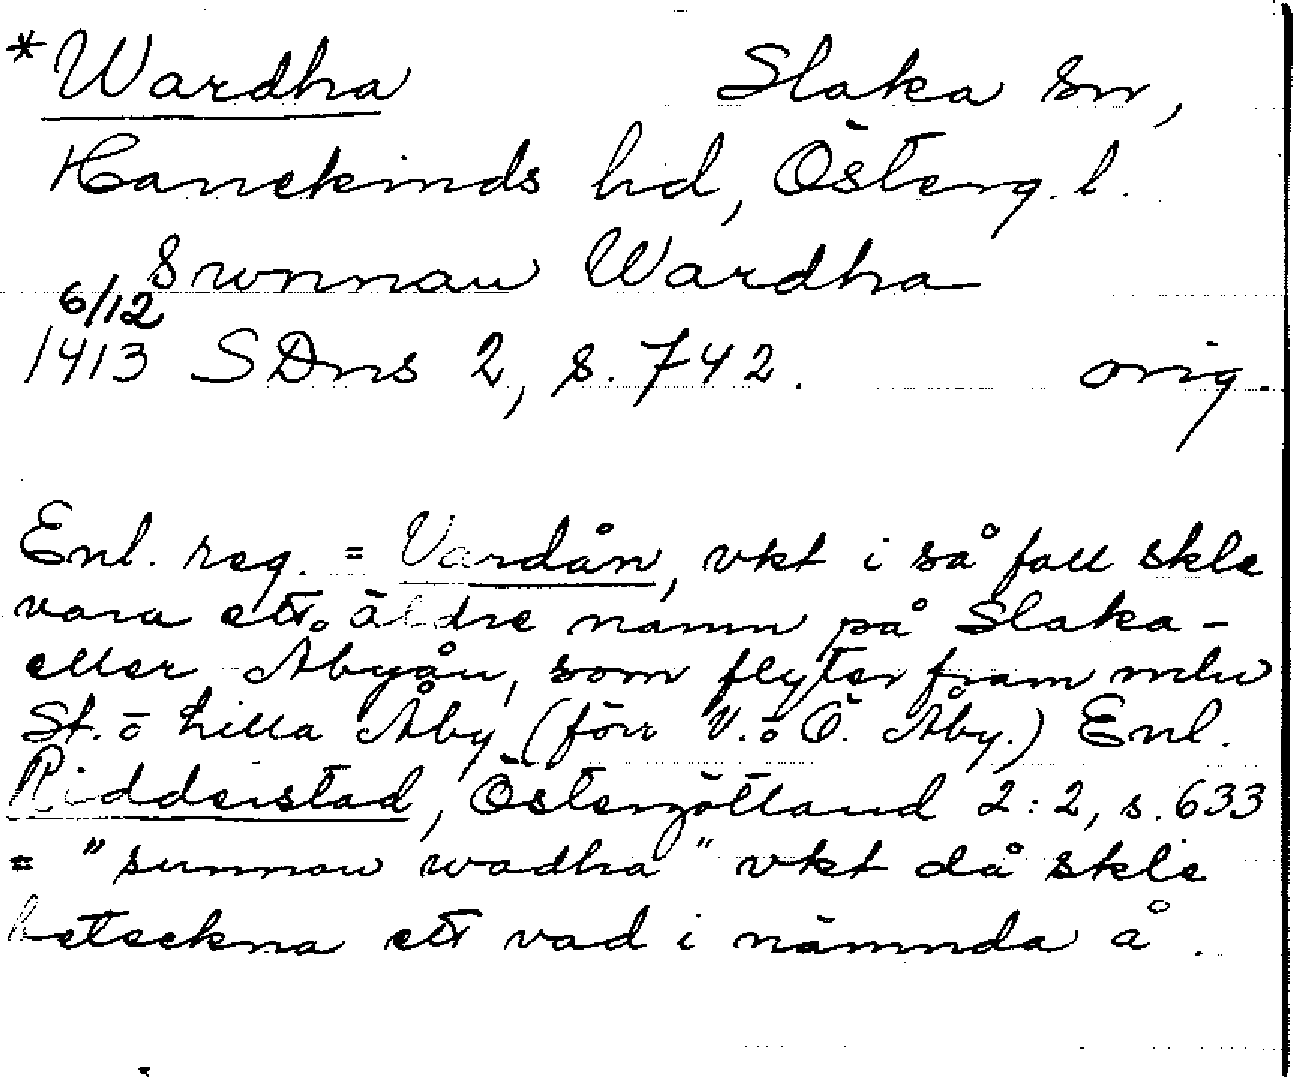 *Wardha Slaka sn,
Hanekinds hd, Österg. l.
Swnnan Wardha
6/12
1413 SDns 2, s. 742. orig.
Enl. reg. = Vardån, vkt i så fall skle
vara ett äldre namn på Slaka-
eller Åbyån, som flyter fram mln
St. o Lilla Åby (förr V. o Ö. Åby.) Enl.
Ridderstad, Östergötland 2:2, s. 633
= "sunnan wadha" vkt då skle
beteckna ett vad i nämnda å.